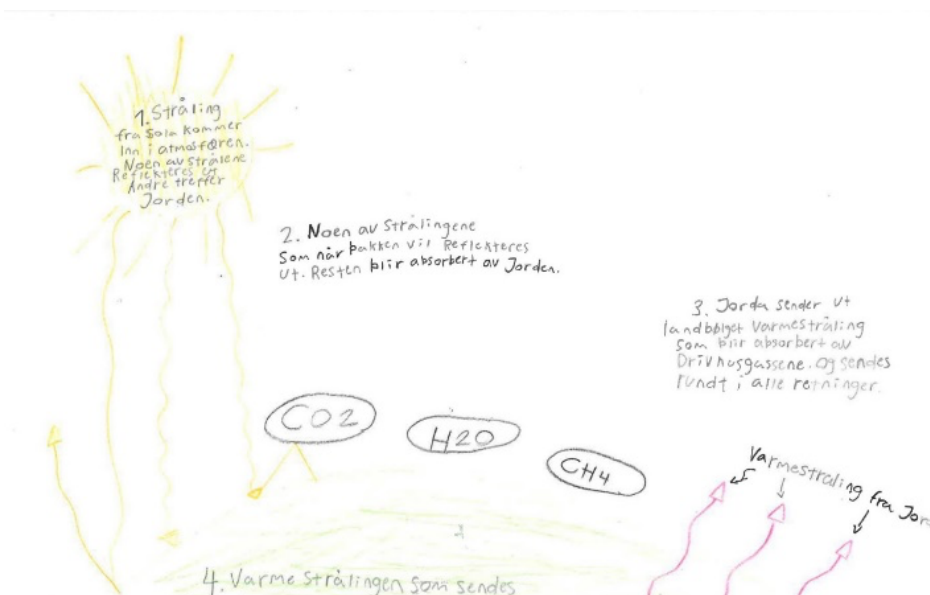 1. Stråling
fra Sola kommer
Inn i atmosfæren.
Noen av strålene
Reflekteres ut
Andre treffer
Jorden.
2. Noen av Strålingene
Som når bakken vil Reflekteres
Ut. Resten blir absorbert av Jorden.
3. Jorda sender ut
landbølget Varmestråling
som blir absorbert av
Drivhusgassene. Og sendes
rundt i alle retninger.
CO2
H2O
CH4
Varmestråling fra
4. Varme Strålingen som sendes